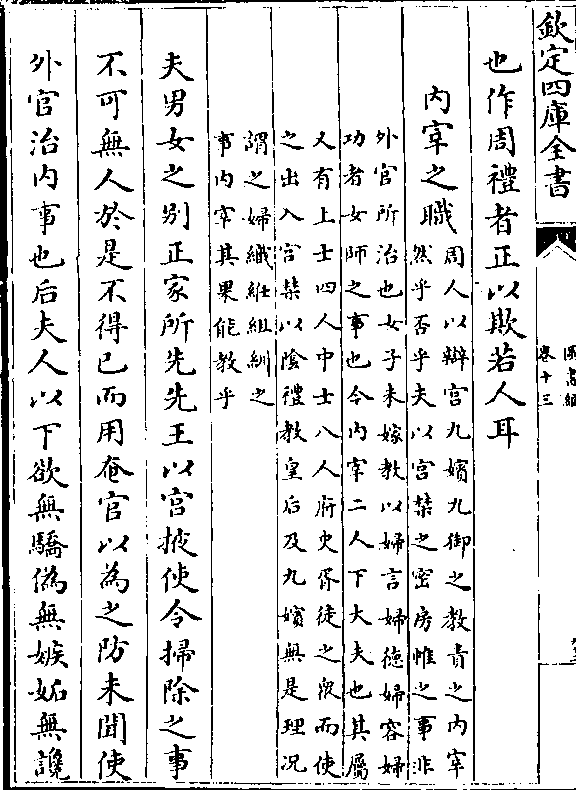 欽定四庫全書
卷十三
也作周禮者正以欺若人耳
內宰之職
周人以辦宮九嬪九御之教責之內宰
然乎否乎夫以宮禁之密房帷之事非
外官所治也女子未嫁教以婦言婦德婦容婦
功者女師之事也今內宰二人下大夫也其屬
又有上士四人中士八人府史胥徒之衆而使
之出入宮禁以陰禮教皇后及九嬪無是理況
謂之婦織紝組紃之
事內宰其果能教乎
夫男女之別正家所先先王以宮掖使令掃除之事
不可無人於是不得已而用奄官以為之防未聞使
外官治內事也后夫人以下欲無驕偽無嫉妬無讒